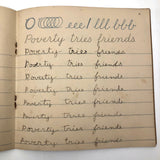 O eee / lll bbb
Poverty tries friends
Poverty tries friends
Poverty tries friends
Poverty tries friends
Poverty tries friends
Poverty tries friends
Poverty tries friends
Poverty tries friends
Poverty tries friends